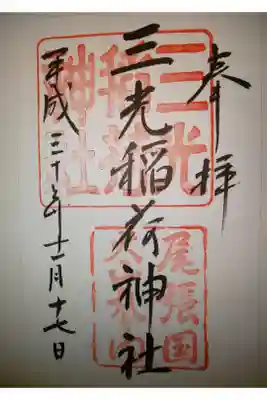 奉拝
三光稲荷神社
平成三十年十一月十七日
三光
稲荷
神社
尾張国